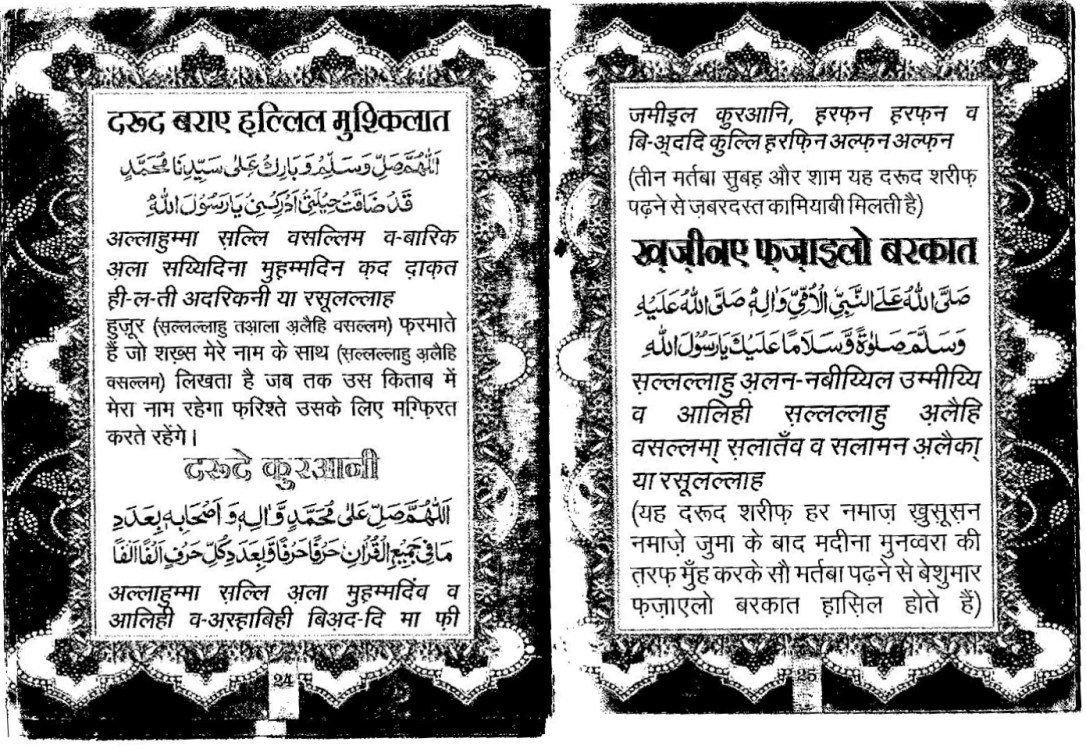 दरूद बराए हल्लिल मुश्किलात
اَللّٰهُمَّ صَلِّ وَسَلِّمْ وَبَارِكْ عَلٰى سَيِّدِنَا مُحَمَّدٍ
قَدْ ضَاقَتْ حِيْلَتِيْ اَدْرِكْنِيْ يَا رَسُوْلَ اللّٰهِ
अल्लाहुम्मा स़ल्लि वसल्लिम व-बारिक
अला सय्यिदिना मुह़म्मदिन क़द द़ाक़त
ही-ल-ती अदरिकनी या रसूलल्लाह
हुज़ूर (स़ल्लल्लाहु तआला अ़लैहि वसल्लम) फ़रमाते
हैं जो शख़्स मेरे नाम के साथ (स़ल्लल्लाहु अ़लैहि
वसल्लम) लिखता है जब तक उस किताब में
मेरा नाम रहेगा फ़रिश्ते उसके लिए मग़्फ़िरत
करते रहेंगे।
दरूदे क़ुरआनी
اَللّٰهُمَّ صَلِّ عَلٰى مُحَمَّدٍ وَّاٰلِهٖ وَ اَصْحَابِهٖ بِعَدَدِ
مَا فِيْ جَمِيْعِ الْقُرْاٰنِ حَرْفًا حَرْفًا وَّبِعَدَدِ كُلِّ حَرْفٍ اَلْفًا اَلْفًا
अल्लाहुम्मा स़ल्लि अ़ला मुह़म्मदिंव व
आलिही व-अस़्हाबिही बिअ़द-दि मा फ़ी
24
जमीइल क़ुरआनि, हरफ़न हरफ़न व
बि-अ़ददि कुल्लि हरफ़िन अल्फ़न अल्फ़न
(तीन मर्तबा सुबह़ और शाम यह दरूद शरीफ़
पढ़ने से ज़बरदस्त कामियाबी मिलती है)
ख़ज़ीनए फ़ज़ाइलो बरकात
صَلَّى اللّٰهُ عَلَى النَّبِيِّ الْاُمِّيِّ وَاٰلِهٖ صَلَّى اللّٰهُ عَلَيْهِ
وَسَلَّمَ صَلٰوةً وَّسَلَامًا عَلَيْكَ يَا رَسُوْلَ اللّٰهِ
स़ल्लल्लाहु अ़लन-नबीय्यिल उम्मीय्यि
व आलिही स़ल्लल्लाहु अ़लैहि
वसल्लमा् स़लातँव व सलामन अ़लैका्
या रसूलल्लाह
(यह दरूद शरीफ़ हर नमाज़ ख़ुस़ूस़न
नमाज़े जुमा के बाद मदीना मुनव्वरा की
त़रफ़ मुँह करके सौ मर्तबा पढ़ने से बेशुमार
फ़ज़ाएलो बरकात ह़ास़िल होते हैं)
25